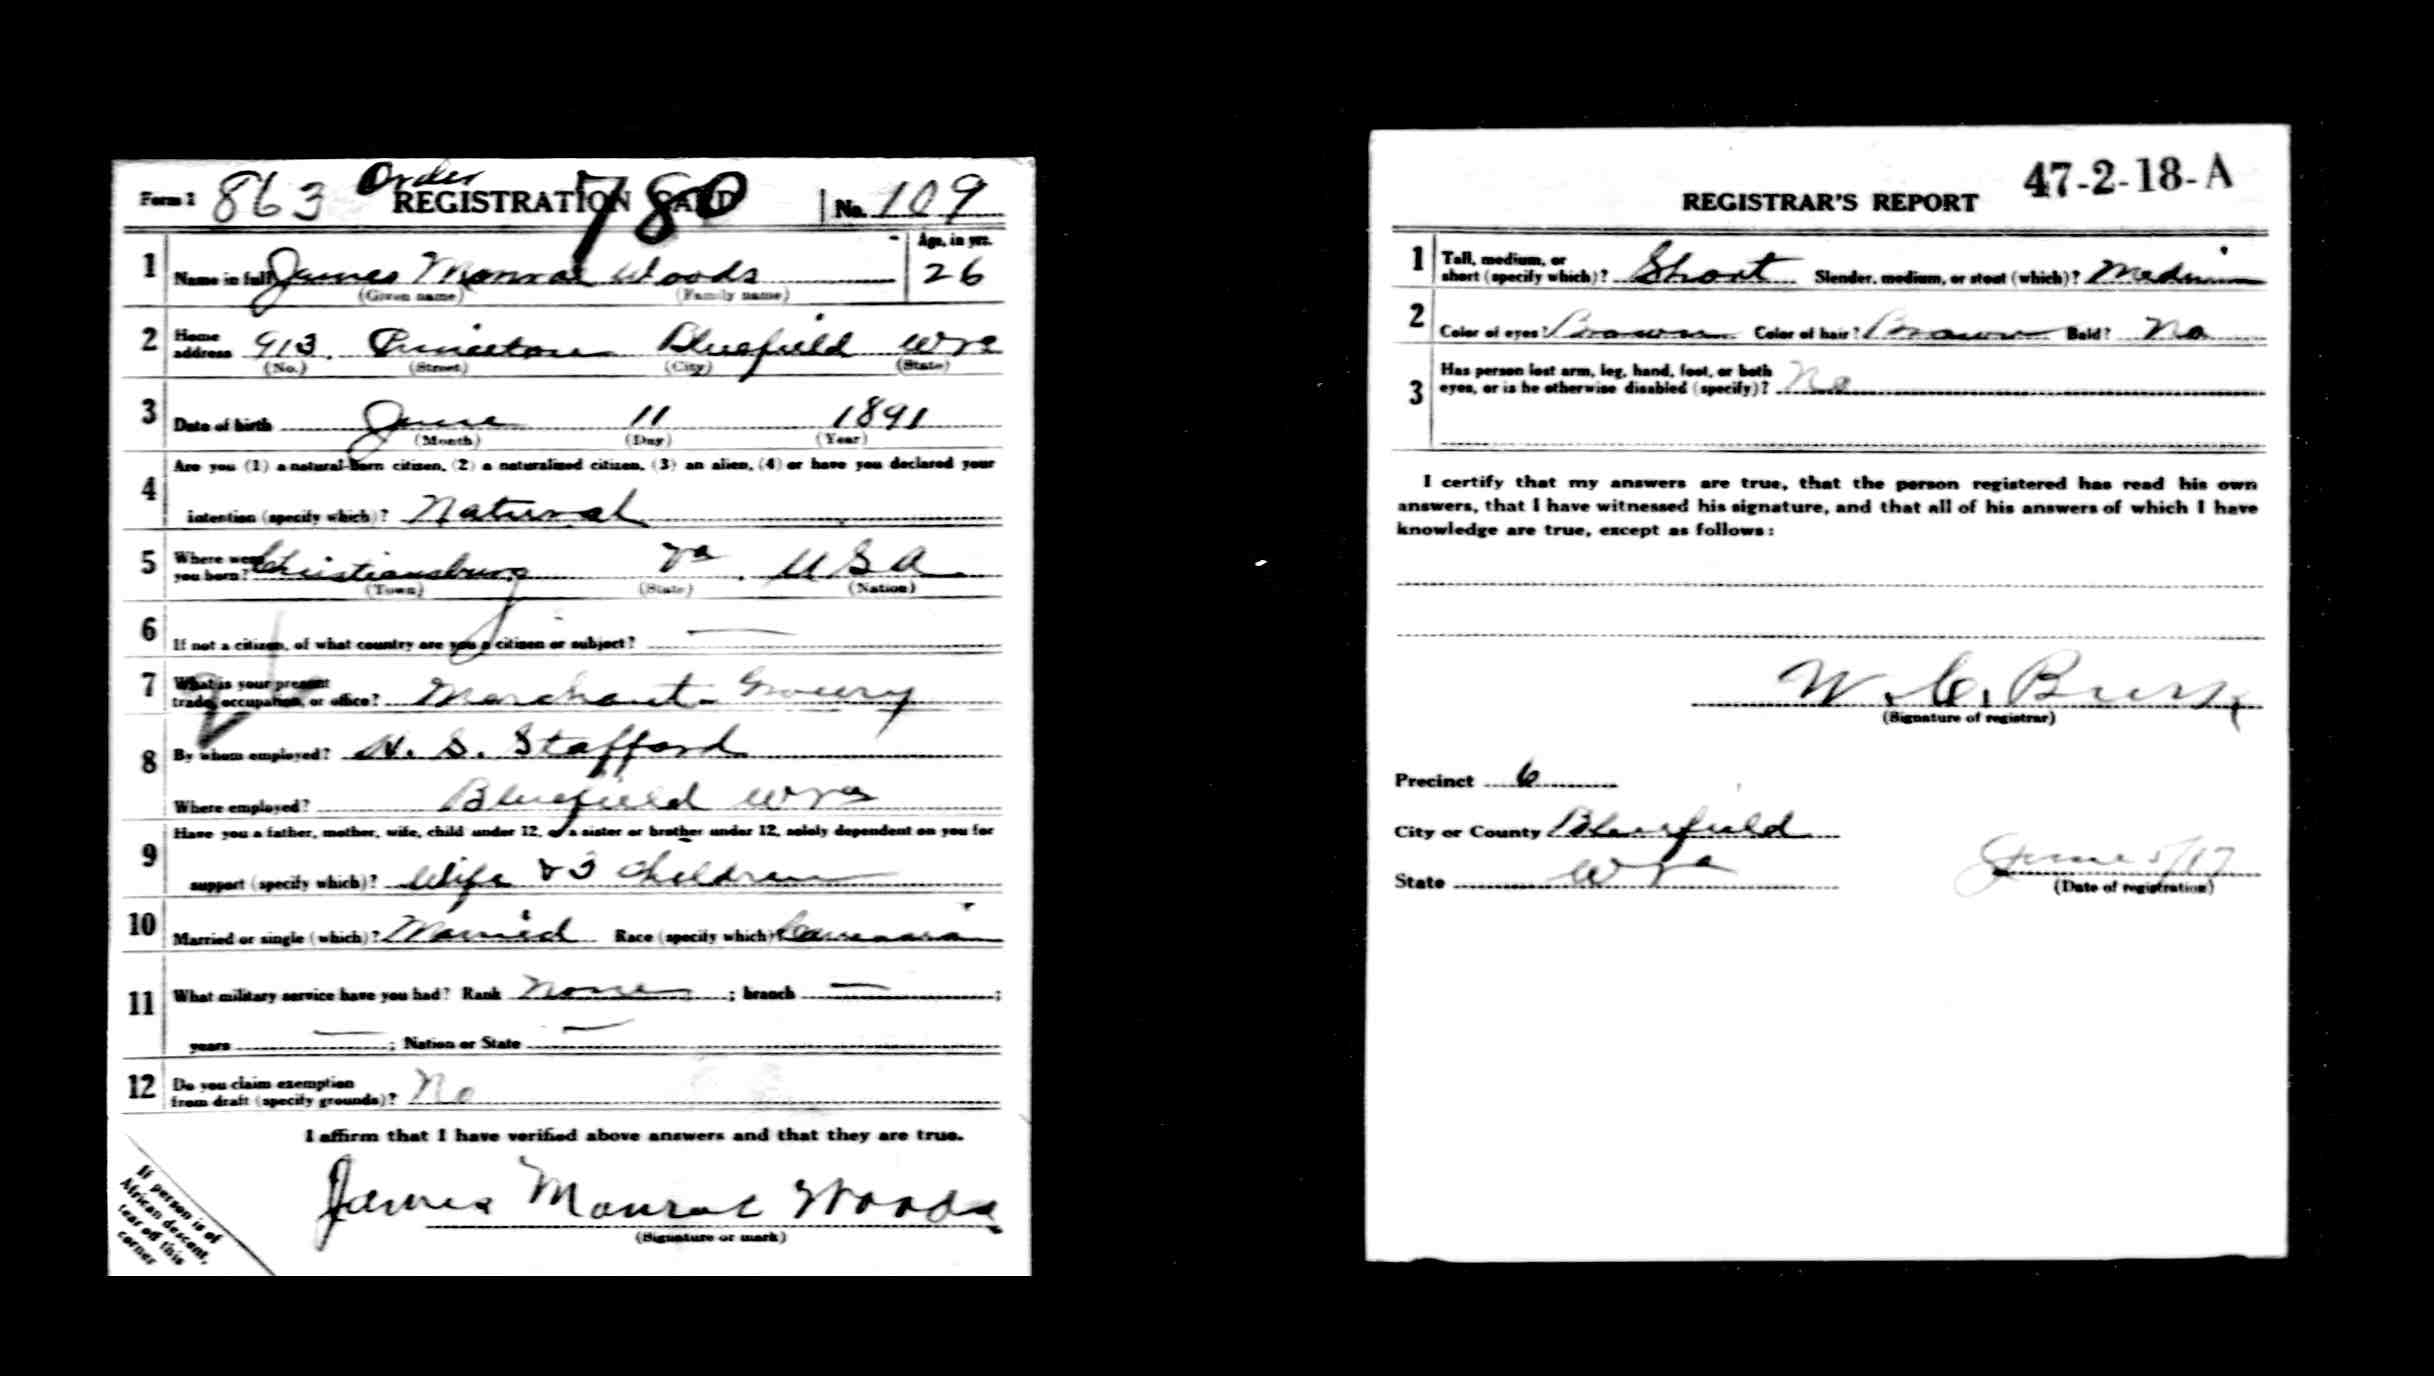 Form 1 863 Order REGISTRATION CARD 780 No. 109
1 Name in full James Monroe Woods Age, in yrs. 26
(Given name) (Family name)
2 Home address 913. Princeton Bluefield W Va
(No.) (Street) (City) (State)
3 Date of birth June 11 1891
(Month) (Day) (Year)
4 Are you (1) a natural-born citizen, (2) a naturalized citizen, (3) an alien, (4) or have you declared your
intention (specify which)? Natural
5 Where were you born? Christiansburg Va. U S A
(Town) (State) (Nation)
6 If not a citizen, of what country are you a citizen or subject? —
7 What is your present trade, occupation, or office? Merchant - Grocery
8 By whom employed? H. S. Stafford
Where employed? Bluefield W Va
9 Have you a father, mother, wife, child under 12, or a sister or brother under 12, solely dependent on you for
support (specify which)? Wife & 3 children
10 Married or single (which)? Married Race (specify which)? Caucasian
11 What military service have you had? Rank None ; branch — ;
years — ; Nation or State —
12 Do you claim exemption from draft (specify grounds)? No
I affirm that I have verified above answers and that they are true.
James Monroe Woods
(Signature or mark)
If person is of
African descent,
tear off this
corner
47-2-18-A
REGISTRAR'S REPORT
1 Tall, medium, or short (specify which)? Short Slender, medium, or stout (which)? Medium
2 Color of eyes? Brown Color of hair? Brown Bald? No
3 Has person lost arm, leg, hand, foot, or both
eyes, or is he otherwise disabled (specify)? No
I certify that my answers are true, that the person registered has read his own
answers, that I have witnessed his signature, and that all of his answers of which I have
knowledge are true, except as follows:
W. C.
(Signature of registrar)
Precinct 6
City or County Bluefield
State W Va
June 5/17
(Date of registration)